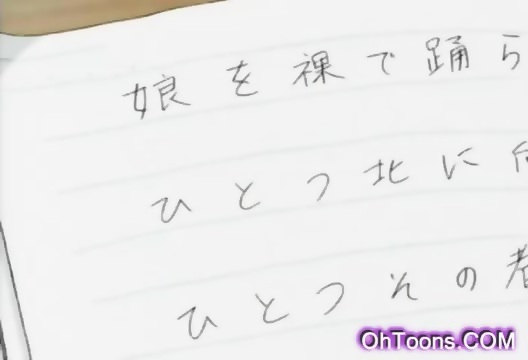 娘を裸で踊ら
ひとつ北に
ひとつその
OhToons.COM